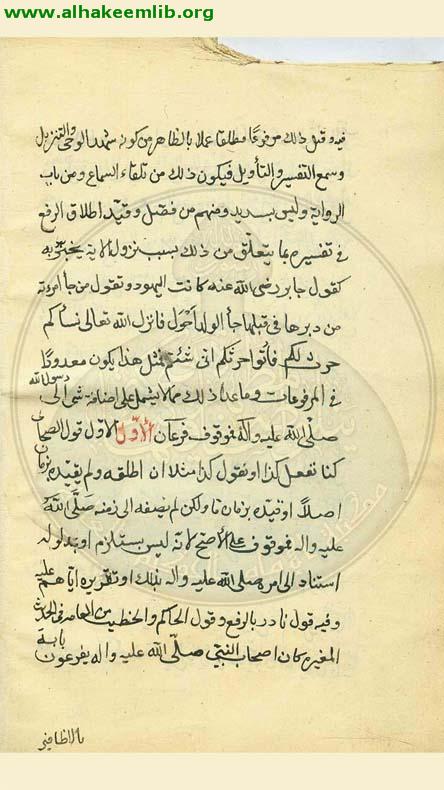 www.alhakeemlib.org
فيه وقيل ذلك مرفوعا مطلقا عملا بالظاهر من كونه شهد الوحي والتنزيل
وسمع التفسير والتأويل فيكون ذلك من تلقاء السماع ومن باب
الرواية وليس بسديد ومنهم من فصّل وقيّد اطلاق الرفع
في تفسيره بما يتعلّق من ذلك بسبب نزول الاية يخبر به
كقول جابر رضى الله عنه كانت اليهود تقول من جا امرءته
من دبرها في قبلها جأ الولد احْوَل فانزل الله تعالى نسآكم
حرث لكم فأتوا حرثكم انى شئتم فمثل هذا يكون معدودًا
في المرفوعات وما عدا ذلك ممالا يشمل على اضافة شئ الى رسول الله
صلّى الله عليه وآله فموقوف فرعان الأوّل الاوّل قول الصحابي
كنا نفعل كذا او نقول كذا مثلا ان اطلقه ولم يقيّده بزمان
اصلًا او قيّده بزمان ما ولكن لم يضفه الى زمنه صَلَّى اللهُ
عليه واله فموقوف على الأصح لانّه ليس بستلزم او بدلوله
استناد الى امره صلى الله عليه واله بذلك او تقريره ايّاهم عليه
وفيه قول نادر بالرفع وقول الحاكم والخطيب من العامه في الحديث
المغيره كان اصحاب النبيّ صلّى الله عليه واله يقرعون بابه
بالاظافير